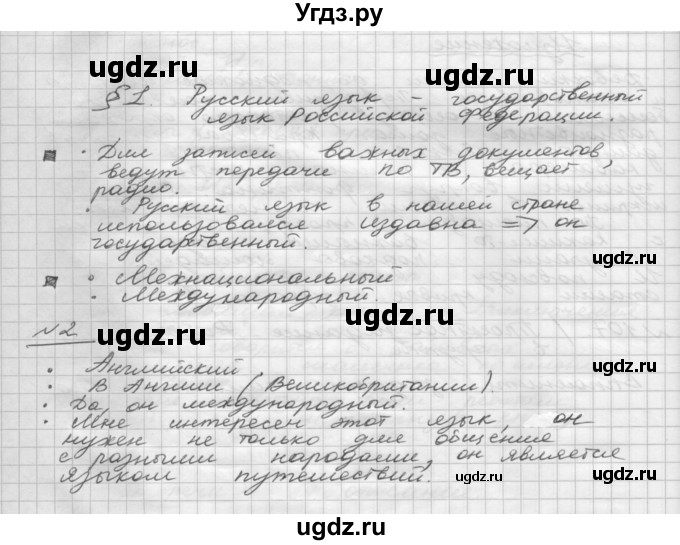 Угдз.ру
§1. Русский язык – государственный
язык Российской Федерации.
• Для записей важных документов,
ведут передачи по ТВ, вещает
радио.
• Русский язык в нашей стране
использовался издавна => он
государственный.
• Межнациональный
• Международный.
№2
• Английский
• В Англии (Великобритании).
• Да, он международный.
• Мне интересен этот язык, он
нужен не только для общения
с разными народами, он является
языком путешествий.
ugdz.ru
ugdz.ru
ugdz.ru
ugdz.ru
ugdz.ru
ugdz.ru
ugdz.ru
ugdz.ru
ugdz.ru
ugdz.ru
ugdz.ru
ugdz.ru